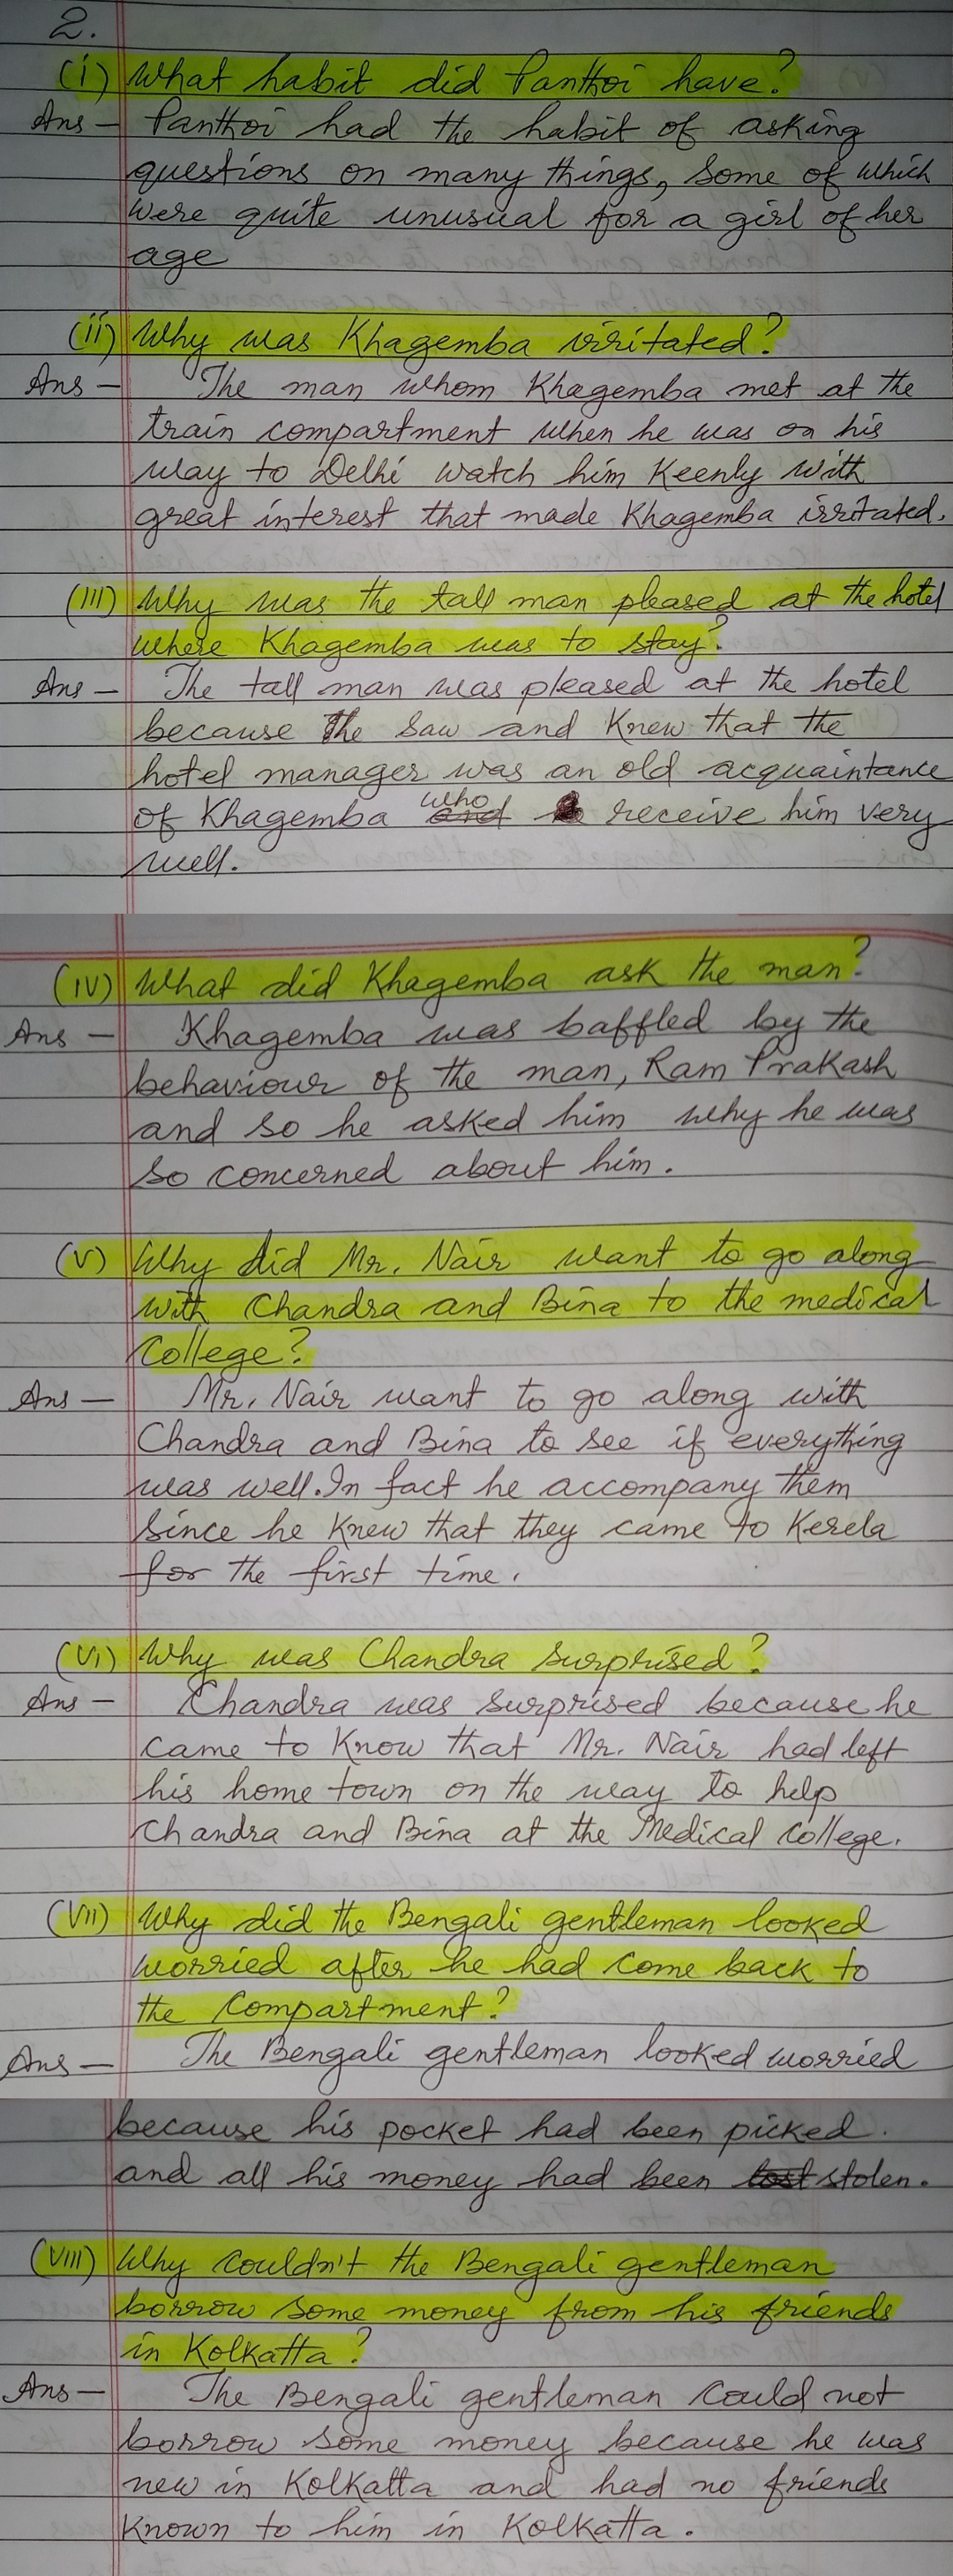 2.
(i) What habit did Panthoi have?
Ans - Panthoi had the habit of asking
questions on many things, some of which
were quite unusual for a girl of her
age
(ii) Why was Khagemba irritated?
Ans - The man whom Khagemba met at the
train compartment when he was on his
way to Delhi watch him keenly with
great interest that made Khagemba irritated.
(III) Why was the tall man pleased at the hotel
where Khagemba was to stay?
Ans - The tall man was pleased at the hotel
because the saw and knew that the
hotel manager was an old acquaintance
of Khagemba who receive him very
well.
(IV) What did Khagemba ask the man?
Ans - Khagemba was baffled by the
behaviour of the man, Ram Prakash
and so he asked him why he was
so concerned about him.
(V) Why did Mr. Nair want to go along
with Chandra and Bina to the medical
College?
Ans - Mr. Nair want to go along with
Chandra and Bina to see if everything
was well. In fact he accompany them
since he knew that they came to Kerela
for the first time.
(VI) Why was Chandra surprised?
Ans - Chandra was surprised because he
came to know that Mr. Nair had left
his home town on the way to help
Chandra and Bina at the Medical College.
(VII) Why did the Bengali gentleman looked
worried after he had come back to
the compartment?
Ans - The Bengali gentleman looked worried
because his pocket had been picked.
and all his money had been lost stolen.
(VIII) Why couldn't the Bengali gentleman
borrow some money from his friends
in Kolkatta?
Ans - The Bengali gentleman could not
borrow some money because he was
new in Kolkatta and had no friends
known to him in Kolkatta.